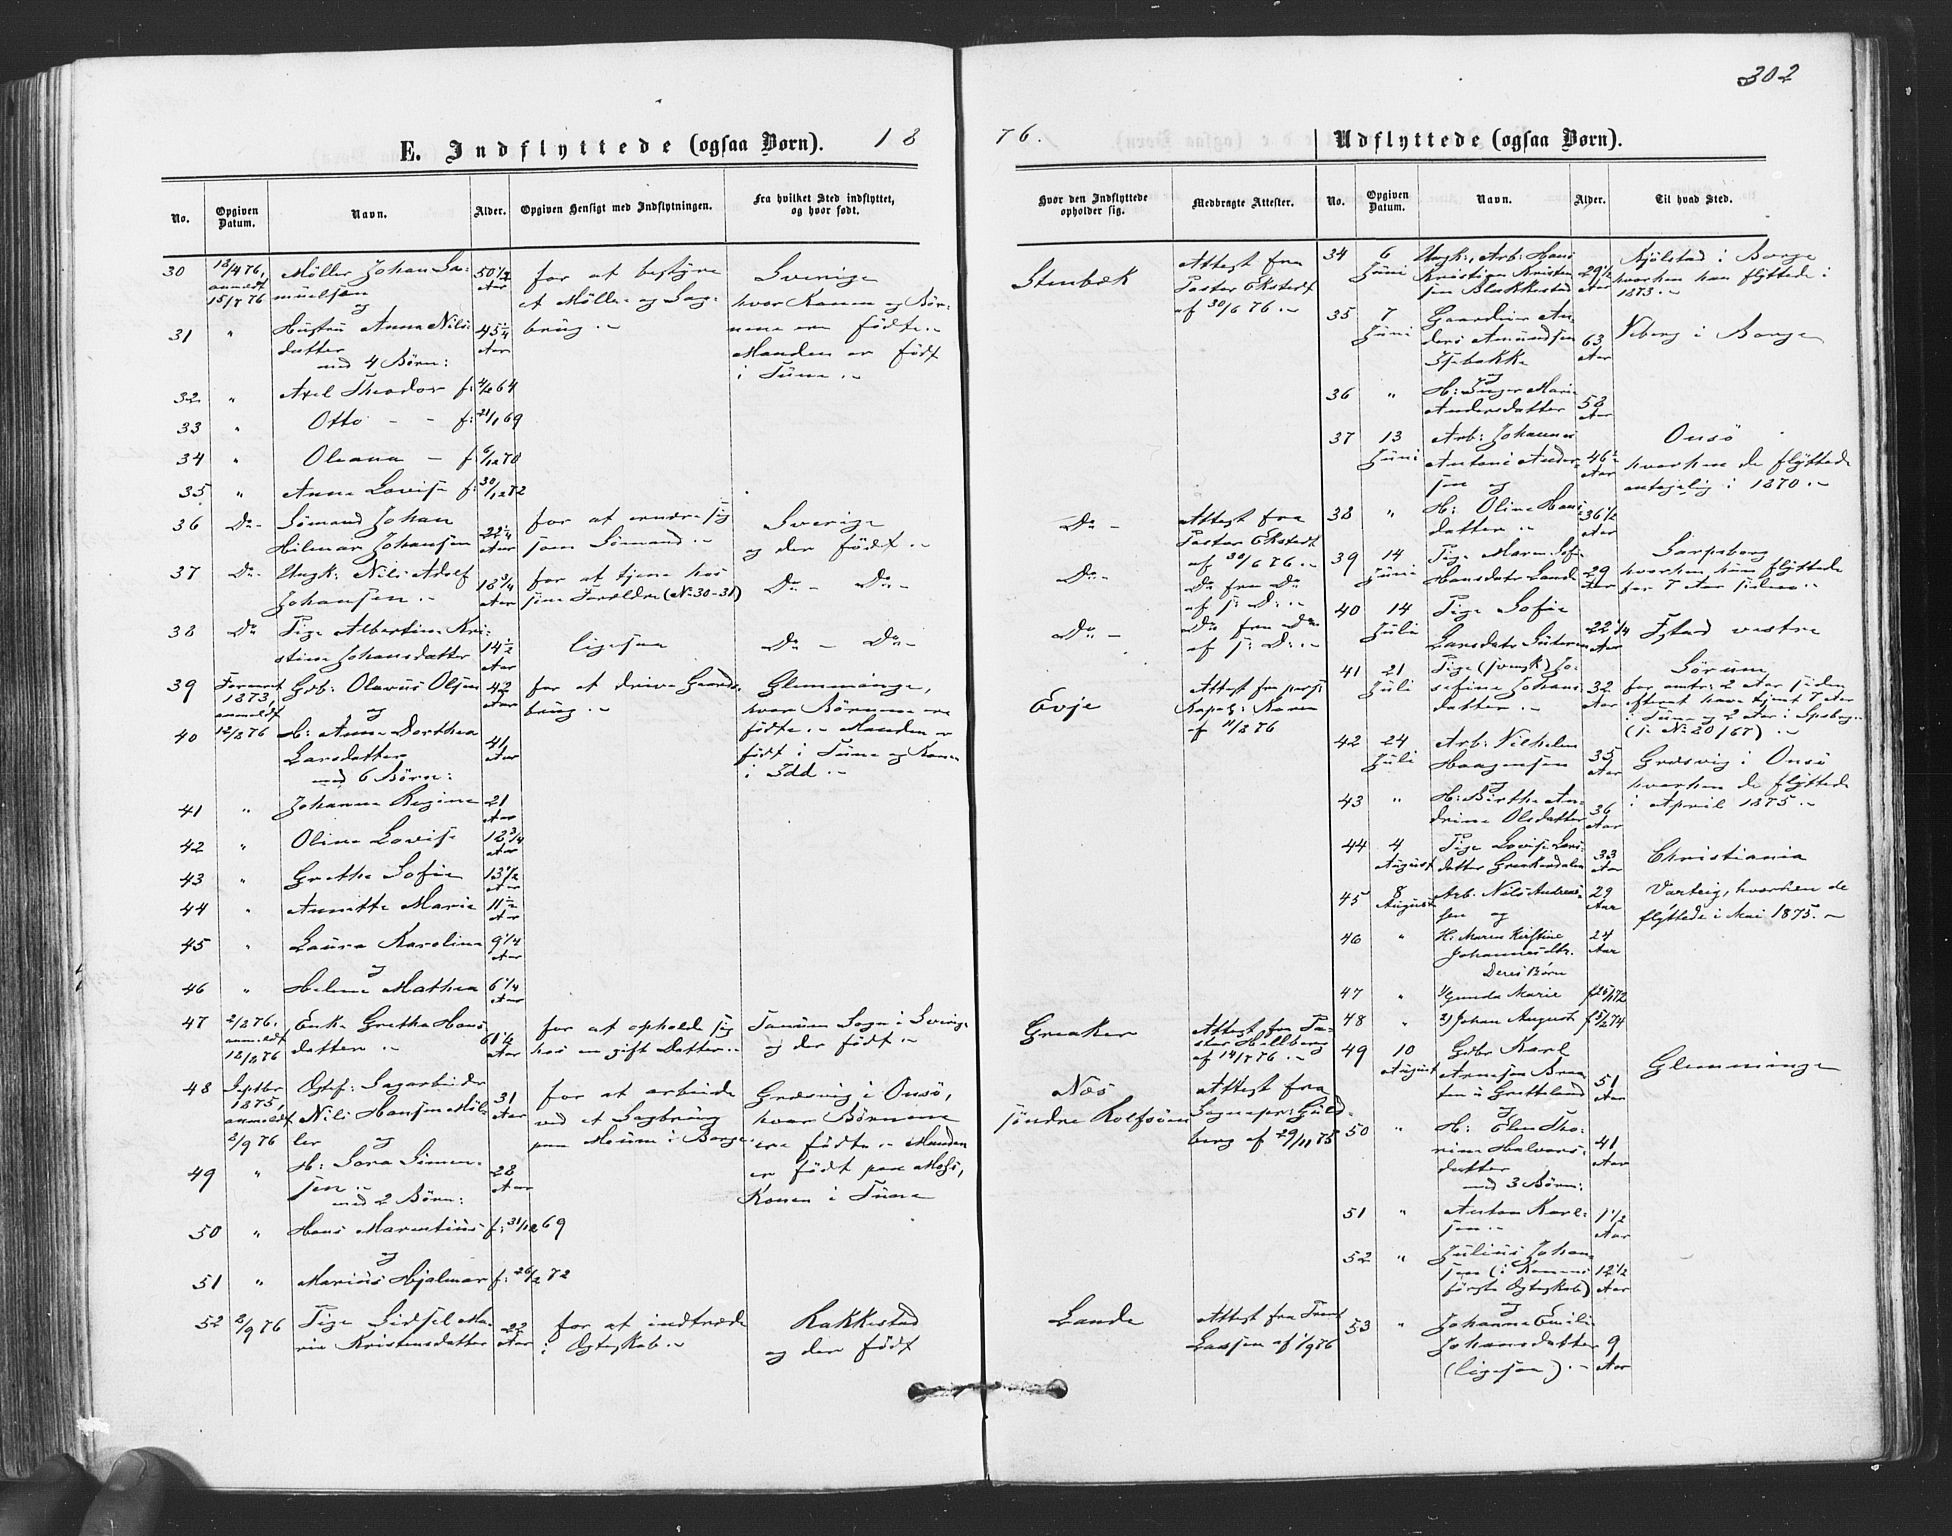 302
E. Indflyttede (ogsaa Børn). 18
76.
Udflyttede (ogsaa Børn).
No.
Opgiven Datum.
Navn.
Alder.
Opgiven Hensigt med Indflytningen.
Fra hvilket Sted indflyttet, og hvor født.
Hvor den Indflyttede opholder sig.
Medbragte Attester.
No.
Opgiven Datum.
Navn.
Alder.
Til hvad Sted.
30
anmeldt
Møller Johan Sa-
muelsen
og
50 1/2 Aar
for at bestyre
et Mølle- og Sag-
brug.-
Sverige
hvor Konen og Bør-
nene ere fødte.-
Manden er født
i Tune.-
Stenbæk
Attest fra
Pastor Ekstedt
af 30/6 76.-
31 "
Hustru Anna Nils-
datter
med 4 Børn:
45 1/4 Aar
32 " Axel Theodor f: 4/2 64
33 " Otto - - f: 21/1 69
34 " Oleana - f 6/12 70
35 " Anna Lovise f: 30/12 72
36 Do- Sømand Johan
Hilmar Johansen
22 1/4 Aar
for at ernære sig
som Sømand.-
Sverige
og der født.-
Do -
Attest fra
Pastor Ekstedt
af 30/6 76.-
37 Do- Ungk: Nils Adolf
Johansen.-
18 3/4 Aar
for at tjene hos
sine Forældre (No 30-31)
Do - Do -
Do -
Do fra Do
af s: D:.-
38 Do Pige Albertine Kri-
stine Johansdatter
14 1/2 Aar
ligesaa
Do - Do -
Do -
Do fra Do
af s: D:.-
39
1873,
anmeldt
12/8 76
Gbr: Olavus Olsen
og
42 Aar
for at drive Gaards-
brug.-
Glemminge,
hvor Børnene ere
fødte.- Manden er
født i Tune og Konen
i Idd.-
Evje
Attest fra pers:
Kapel:
af 11/8 76
40
H: Anne Dorthea
Larsdatter
med 6 Børn:
41 Aar
41 " Johanne Regine 21 Aar
42 " Oline Lovise 18 3/4 Aar
43 " Grethe Sofie 13 1/2 Aar
44 " Annette Marie 11 1/2 Aar
45 " Laura Karoline 9 1/4 Aar
og
46 " Helene Mathea 6 1/4 Aar
47 2/8 76.
anmeldt
12/8 76
Enke Grethe Hans-
datter.-
61 1/2 Aar
for at opholde sig
hos en gift Datter.-
Tanum Sogn i Sverige
og der født.-
Greaker
Attest fra Pa-
stor Hellberg
48 Septbr
1875,
anmeldt
2/9 76
Gift: Sagarbeider
Nils Hansen Møl-
ler og
31 Aar
for at arbeide
ved et Sagbrug
paa Moum i Borge
Græsvig i Onsö,
hvor Børnene
ere fødte.- Manden
er født paa Moss,
Konen i Tune
Næs
søndre Rolfsøen
Attest fra
Sognepr: Guld-
berg af 29/11 75
49 " H: Sara Simen-
sen.-
med 2 Børn:
28 Aar
50 " Hans Marentius f: 31/12 69
og
51 " Marius Hjalmar f: 26/2 72
52 2/9 76 Pige Sidsel Ma-
rie Kristensdatter
22 Aar
for at indtræde
i Ægteskab.-
Rakkestad
og der født
Lande
Attest fra
Lassen af 1/9 76
34 6 Juni
Ungk:, Arb: Hans
Kristian Kristen-
sen Blakkestad
29 1/2 Aar
Kjølstad i Borge
hvorhen han flyttede i
1873.-
35 7 Juni
Gaardeier An-
ders Amundsen
og
63 Aar
Neberg i Borge
36 " H: Inger Marie
Andersdatter
58 Aar
37 13 Juni
Arb: Johannes
Antoni Ander-
sen og
46 1/2 Aar
Onsö
hvorhen de flyttede
antagelig i 1870.-
38 " H: Oline Hans-
datter.-
36 1/2 Aar
39 14 Juni
Pige Maren Sof:
Hansdatr Lande
29 Aar
Sarpsborg
hvorhen hun flyttede
for 7 Aar siden.-
40 14 Juli
Pige Sofie
Larsdatr
22 1/4 Aar
Ystad vestre
41 21 Juli
Pige (svensk) Jo-
sefine Johans-
datter.-
32 Aar
Sørum
for omtr: 2 Aar siden
efterat have tjent 7 Aar
i Tune og 2 Aar i Spsborg
(s: No 20/67).-
42 24 Juli
Arb: Vilhelm
Haagensen
og
35 Aar
Græsvig i Onsö
hvorhen de flyttede
i April 1875.-
43 " H: Birthe An-
drine Olsdatter
36 Aar
44 4 August
Pige Lovise Lars-
datter Greakerdalen
33 Aar
Christiania
45 8 August
Arb: Nils Andreas-
sen og
29 Aar
Varteig, hvorhen de
flyttede i Mai 1875.-
46 " H: Maren Kirstine
Johannesdtr.
Deres Børn
24 Aar
47 " 1) Gunda Marie
48 " 2) Johan August
49 10 August
Gbr Karl
Arnesen
og
51 Aar
Glemminge
50 " H: Elen Tho-
rine Halvors-
datter
med 3 Børn:
41 Aar
51 " Anton Karl-
sen.-
1 1/2 Aar
52 " Julius Johan-
sen (i Konens
første Ægteskab)
og
12 1/2 Aar
53 " Johanne Emilie
Johansdatter
(ligesaa).-
9 Aar